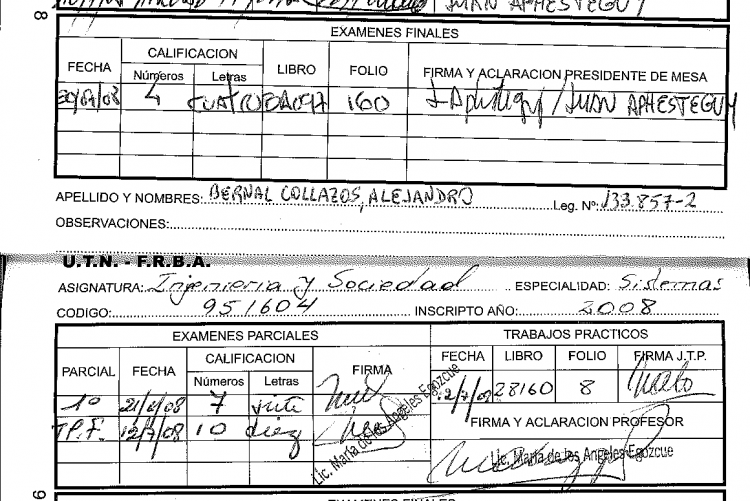 8
JUAN APHESTEGUY
EXAMENES FINALES
FECHA CALIFICACION LIBRO FOLIO FIRMA Y ACLARACION PRESIDENTE DE MESA
Números Letras
4 CUATRO 160 JUAN APHESTEGUY
APELLIDO Y NOMBRES: BERNAL COLLAZOS, ALEJANDRO Leg. Nº: 133.857-2
OBSERVACIONES:
U.T.N. - F.R.B.A.
ASIGNATURA: Ingenieria y Sociedad ESPECIALIDAD: Sistemas
CODIGO: 951604 INSCRIPTO AÑO: 2008
EXAMENES PARCIALES TRABAJOS PRACTICOS
PARCIAL FECHA CALIFICACION FIRMA FECHA LIBRO FOLIO FIRMA J.T.P.
Números Letras
28160 8
1º 21/6/08 7 siete
FIRMA Y ACLARACION PROFESOR
T.P.F. 12/7/08 10 diez
Lic. María de los Angeles Egozcue
Lic. María de los Angeles Egozcue
9
EXAMENES FINALES